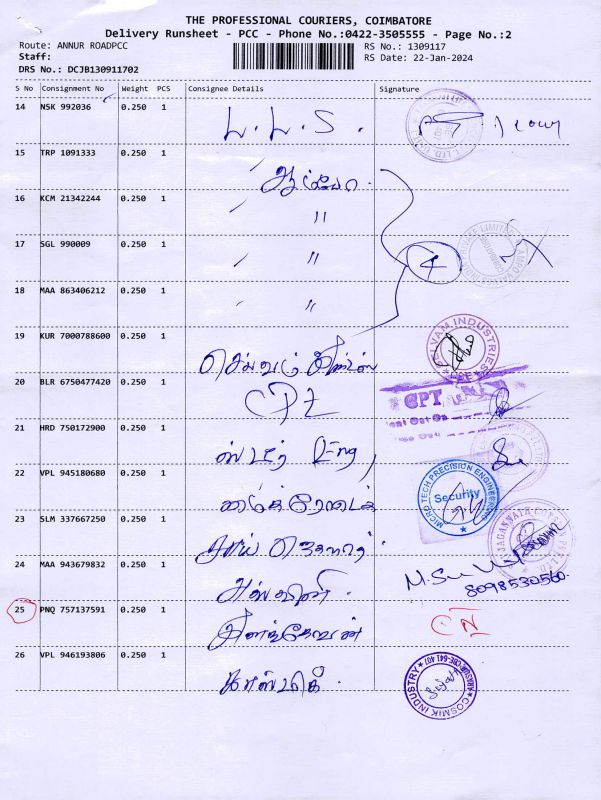 THE PROFESSIONAL COURIERS, COIMBATORE
Delivery Runsheet - PCC - Phone No.:0422-3505555 - Page No.:2
Route: ANNUR ROADPCC
RS No.: 1309117
Staff:
RS Date: 22-Jan-2024
DRS No.: DCJB130911702
S No Consignment No Weight PCS Consignee Details Signature
14 NSK 992036 0.250 1 L.L.S.
15 TRP 1091333 0.250 1
16 KCM 21342244 0.250 1 "
17 SGL 990009 0.250 1 " 4
18 MAA 863406212 0.250 1 "
19 KUR 7000788600 0.250 1
INDUSTRIES
20 BLR 6750477420 0.250 1 CPT
CPT
21 HRD 750172900 0.250 1 ஸ்டார் Eng
22 VPL 945180680 0.250 1
MICRO TECH PRECISION ENGINEERING
Security
23 SLM 337667250 0.250 1 சாய்
24 MAA 943679832 0.250 1 அஸ்வினி
8098530560
25 PNQ 757137591 0.250 1 இளங்கோவன்
26 VPL 946193806 0.250 1 காஸ்மிக்
COSMIK INDUSTRY